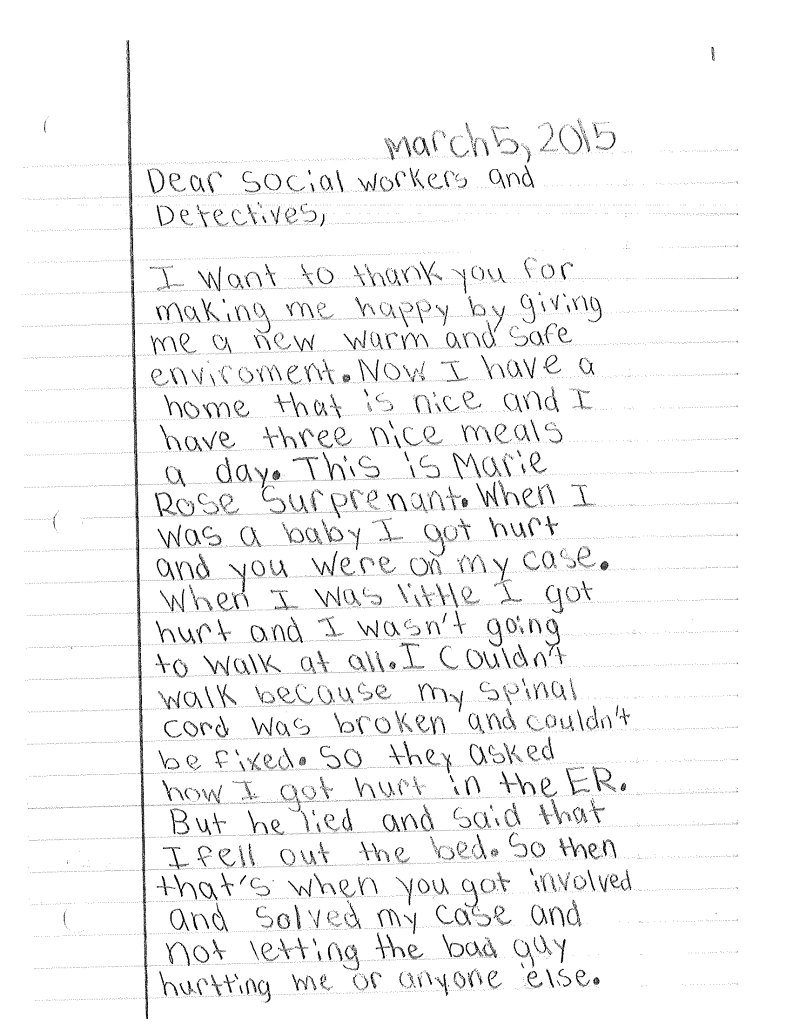 1
March 5, 2015
Dear Social workers and
Detectives,
I want to thank you for
making me happy by giving
me a new warm and safe
enviroment. Now I have a
home that is nice and I
have three nice meals
a day. This is Marie
Rose Surprenant. When I
was a baby I got hurt
and you were on my case.
When I was little I got
hurt and I wasn't going
to walk at all. I couldn't
walk because my spinal
cord was broken and couldn't
be fixed. So they asked
how I got hurt in the ER.
But he lied and said that
I fell out the bed. So then
that's when you got involved
and solved my case and
not letting the bad guy
hurtting me or anyone else.